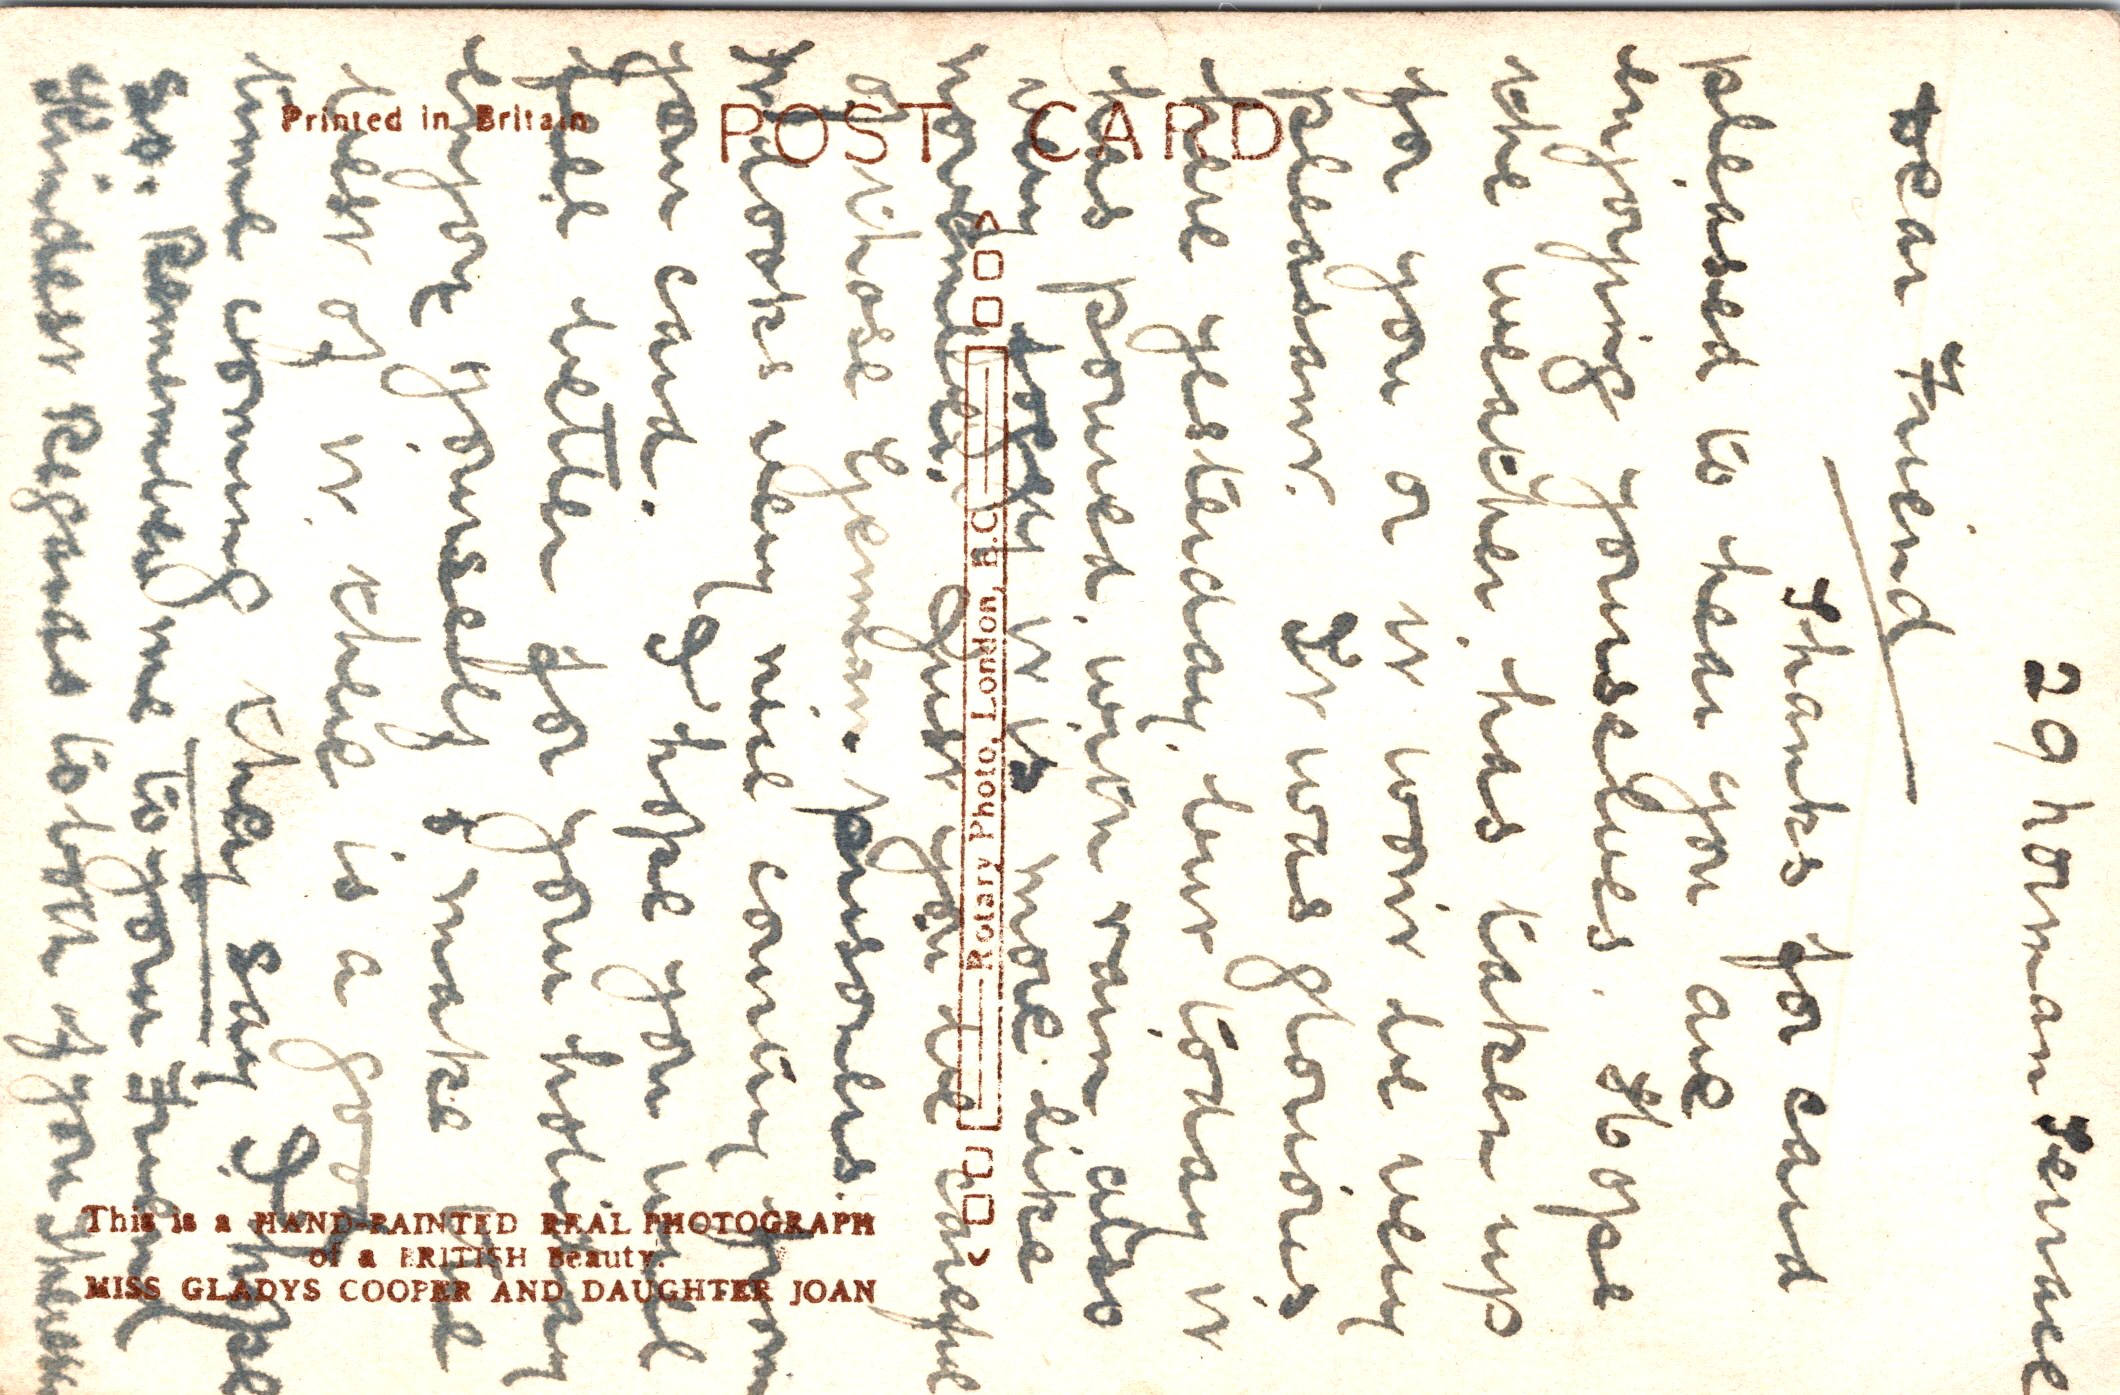 POST CARD
Printed in Britain
Rotary Photo, London, E.C.
This is a HAND-PAINTED REAL PHOTOGRAPH
of a BRITISH Beauty.
MISS GLADYS COOPER AND DAUGHTER JOAN
29 Norman Terrace
Dear Friend
Thanks for card
pleased to hear you are
enjoying yourselves. Hope
the weather has taken up
for you or it wont be very
pleasant. It was glorious
here yesterday, but today it
has poured with rain also
very foggy it is more like
November. Just you be careful
of those German prisoners.
It looks very nice coming from
your card. I hope you will
feel better for your holiday
enjoy yourself & make the
best of it. there is a good
time coming they say I hope
so. Remember me to your Friend
Kindest Regards to both of you